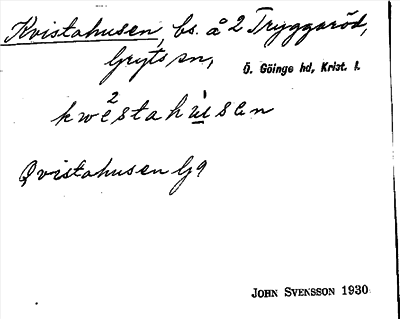 Kvistahusen, bs. å 2 Tryggaröd,
Gryts sn,
Ö. Göinge hd, Krist. l.
kwe²stahùsen
Qvistahusen G9
JOHN SVENSSON 1930